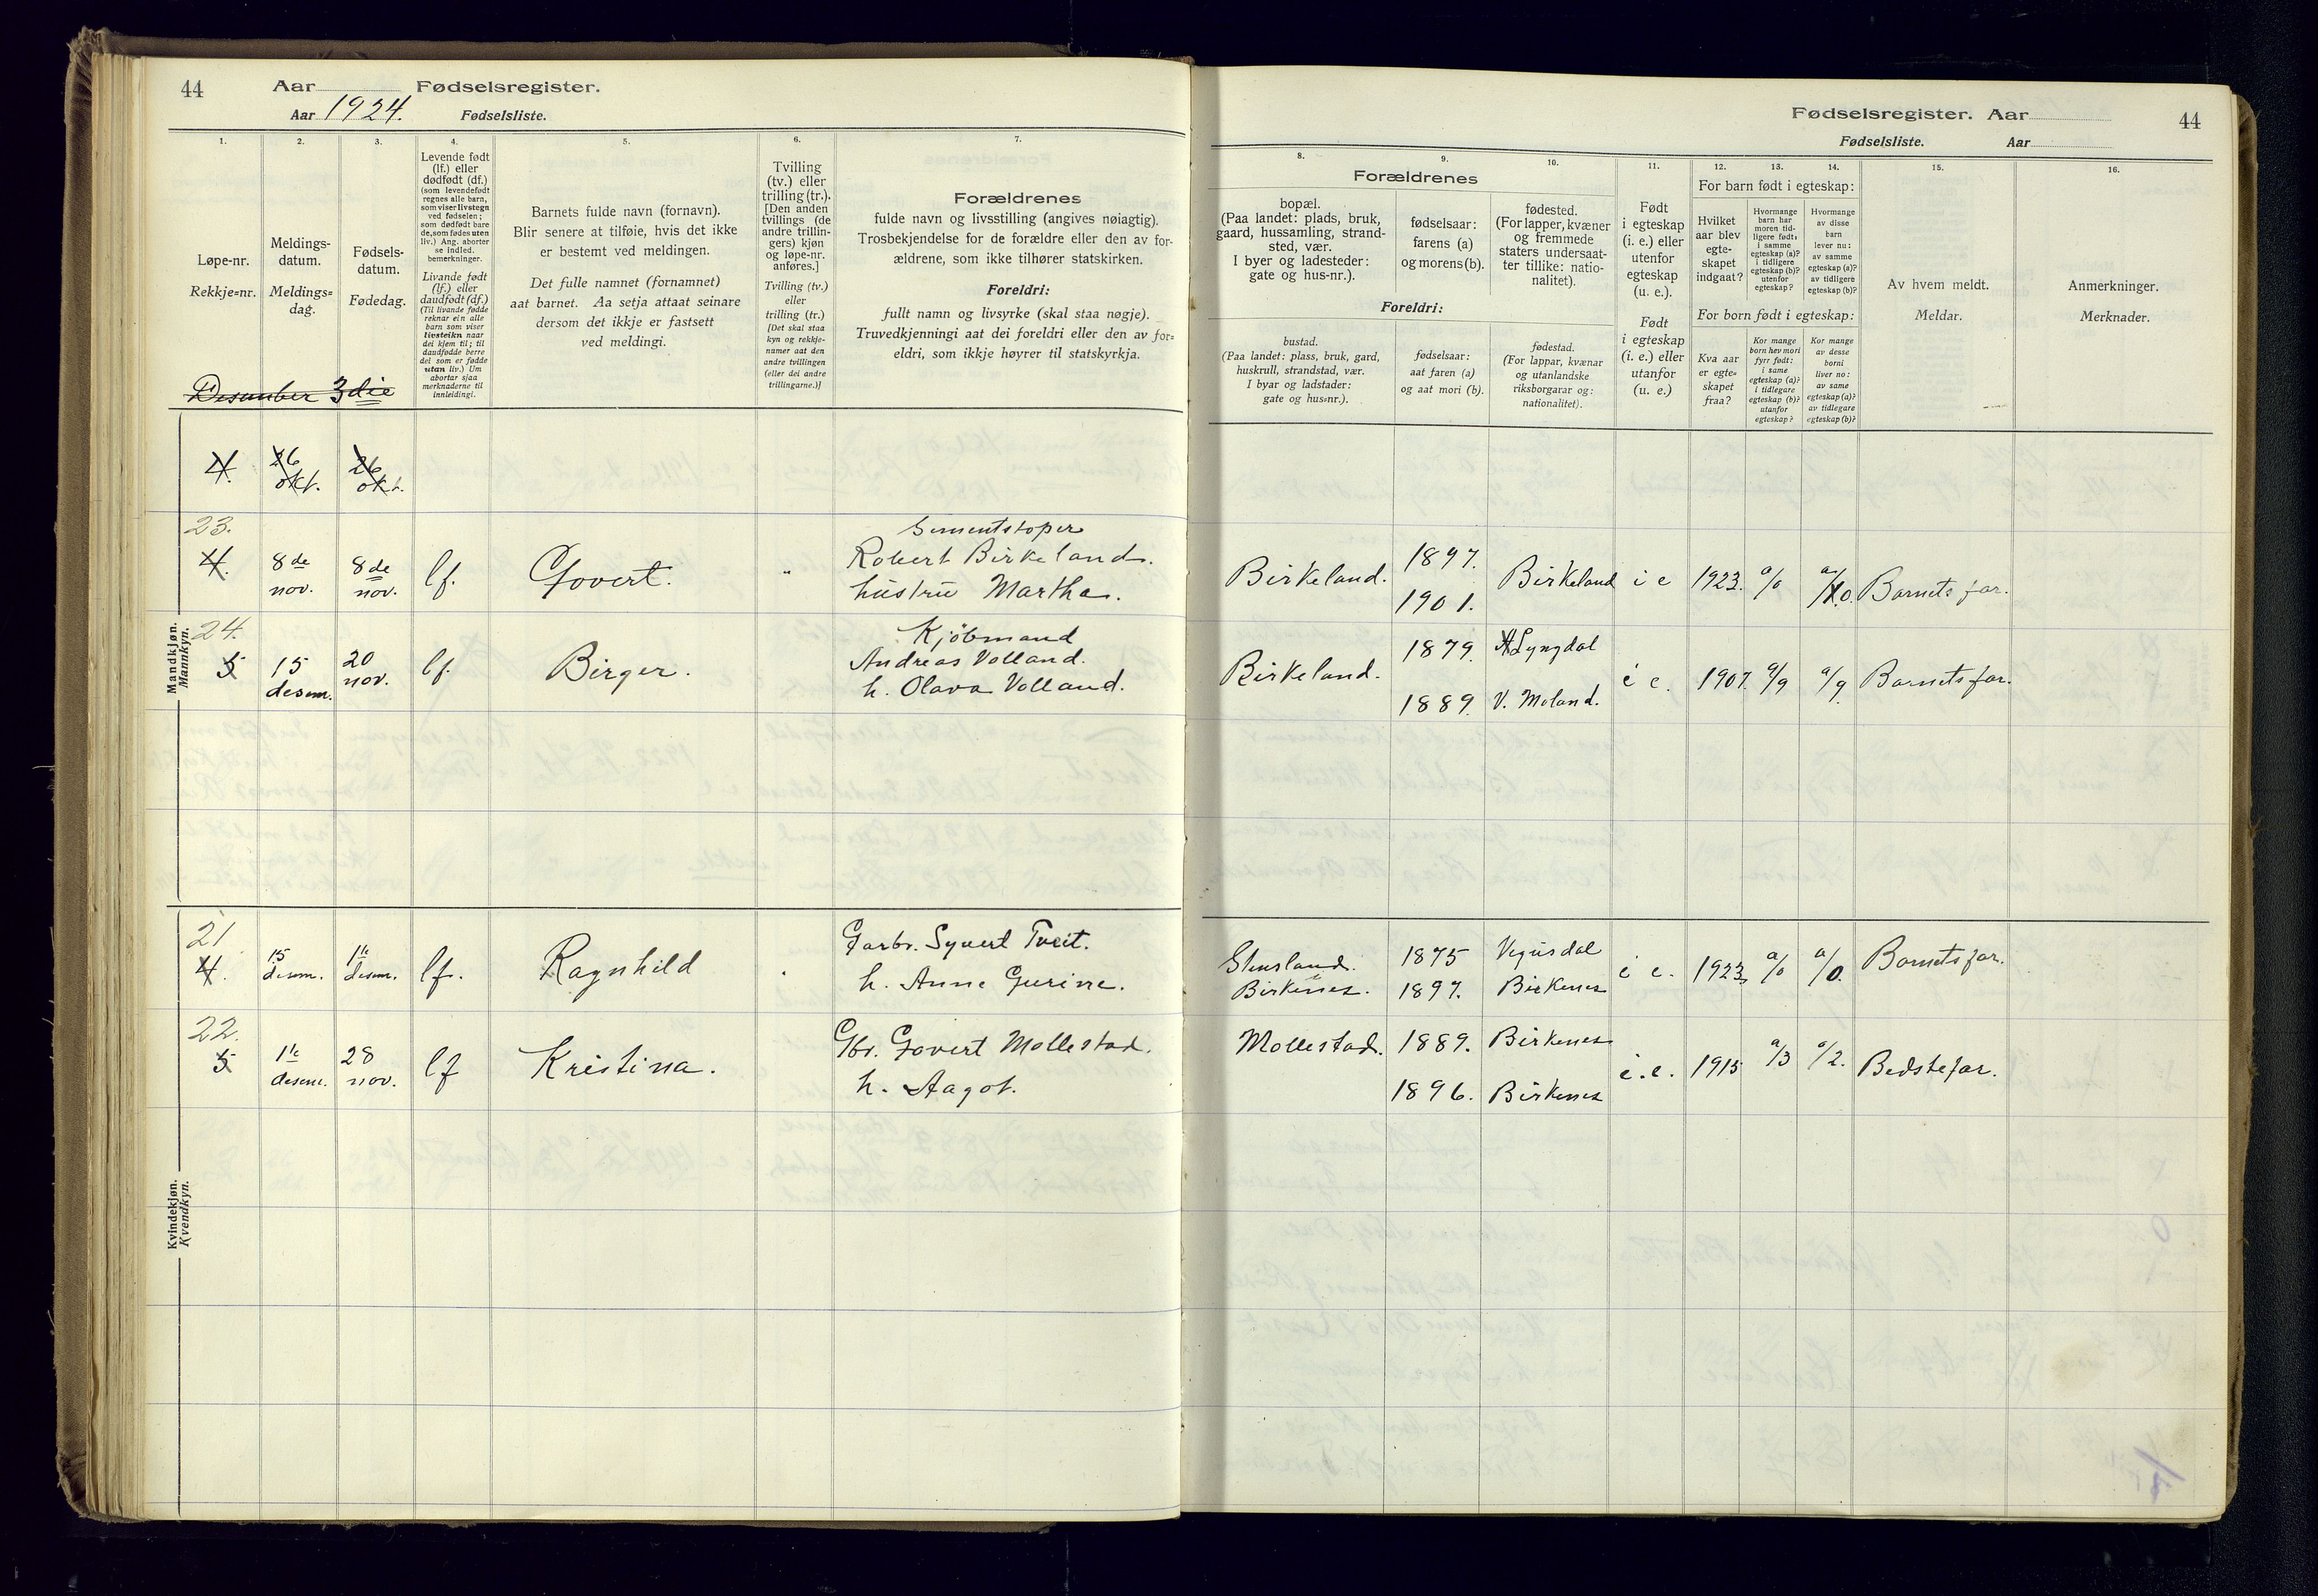 44
Aar Fødselsregister.
Aar 1924. Fødselsliste.
1.
2.
3.
4.
5.
6.
7.
Løpe-nr.
Rekkje=nr.
Meldings-
datum.
Meldings=
dag.
Fødsels-
datum.
Fødedag.
Levende født
(lf.) eller
dødfødt (df.)
(som levendefødt
regnes alle barn,
som viser livstegn
ved fødselen;
som dødfødt bare
de, som fødes uten
liv.) Ang. aborter
se indled.
bemerkninger.
Livande født
(lf.) eller
daudfødt (df.)
(Til livande fødde
reknar ein alle
barn som viser
livsteikn naar
dei kjem til; til
daudfødde berre
dei som er fødde
utan liv.) Um
abortar sjaa
merknaderne til
innleidingi.
Barnets fulde navn (fornavn).
Blir senere at tilføie, hvis det ikke
er bestemt ved meldingen.
Det fulle namnet (fornamnet)
aat barnet. Aa setja attaat seinare
dersom det ikkje er fastsett
ved meldingi.
Tvilling
(tv.) eller
trilling (tr.).
[Den anden
tvillings (de
andre trillin-
gers) kjøn
og løpe-nr.
anføres.]
Tvilling (tv.)
eller
trilling (tr.)
[Det skal staa
kyn og rekkje-
numer aat den
andre tvillingen
(eller dei andre
trillingarne.)]
Forældrenes
fulde navn og livsstilling (angives nøiagtig).
Trosbekjendelse for de forældre eller den av for-
ældrene, som ikke tilhører statskirken.
Foreldri:
fullt namn og livsyrke (skal staa nøgje).
Truvedkjenningi aat dei foreldri eller den av for=
eldri, som ikkje høyrer til statskyrkja.
Desember 3die
Mandkjøn.
Mannkyn.
4. 26 okt. 26 okt.
23.
4. 8de nov. 8de nov. lf. Govert. "
Sementstøper
Robert Birkeland.
hustru Martha.
24.
5 15 desem. 20 nov. lf. Birger.
Kjöbmand
Andreas Volland.
h. Olava Volland.
Kvindekjøn.
Kvendkyn.
21
4. 15 desem. 1ste desem. lf. Ragnhild
Garbr. Syvert Tveit.
h. Anne Gurine.
22.
5 1ste desem. 28 nov. lf Kristina.
Gbr. Govert Mollestad.
h. Aagot.
Fødselsregister. Aar 44
Fødselsliste. Aar
8.
9.
10.
11.
12.
13.
14.
15.
16.
Forældrenes
bopæl.
(Paa landet: plads, bruk,
gaard, hussamling, strand-
sted, vær.
I byer og ladesteder:
gate og hus-nr.).
fødselsaar:
farens (a)
og morens (b).
fødested.
(For lapper, kvæner
og fremmede
staters undersaat-
ter tillike: natio-
nalitet).
Foreldri:
bustad.
(Paa landet: plass, bruk, gard,
huskrull, strandstad, vær.
I byar og ladstader:
gate og hus=nr.).
fødselsaar:
aat faren (a)
og aat mori (b).
fødestad.
(For lappar, kvænar
og utanlandske
riksborgarar og:
nationalitet).
Født
i egteskap
(i. e.) eller
utenfor
egteskap
(u. e.).
Født
i egteskap
(i. e.) eller
utanfor
(u. e.)
For barn født i egteskap:
Hvilket
aar blev
egte-
skapet
indgaat?
Hvormange
barn har
moren tid-
ligere født:
i samme
egteskap (a)?
i tidligere
egteskap (b)?
utenfor
egteskap?
Hvormange
av disse
barn
lever nu:
av samme
egteskap (a)?
av tidligere
egteskap (b)?
For born født i egteskap:
Kva aar
er egte=
skapet
fraa?
Kor mange
born hev mori
fyrr født:
i same
egteskap (a)?
i tidlegare
egteskap (b)?
utanfor
egteskap?
Kor mange
av desse
borni
liver no:
av same
egteskap (a)?
av tidlegare
egteskap (b)?
Av hvem meldt.
Meldar.
Anmerkninger.
Merknader.
Birkeland. 1897. 1901. Birkeland i e 1923. a/0 a/0. Barnets far.
Birkeland. 1879. Lyngdal i e. 1907. a/9 a/9. Barnets far.
1889. V. Moland.
Stensland. 1875 Vegusdal i e. 1923. a/0 a/0. Barnets far.
Birkenes. 1897. Birkenes
Mollestad. 1889. Birkenes i.e. 1915 a/3 a/2. Bedstefar.
1896. Birkenes